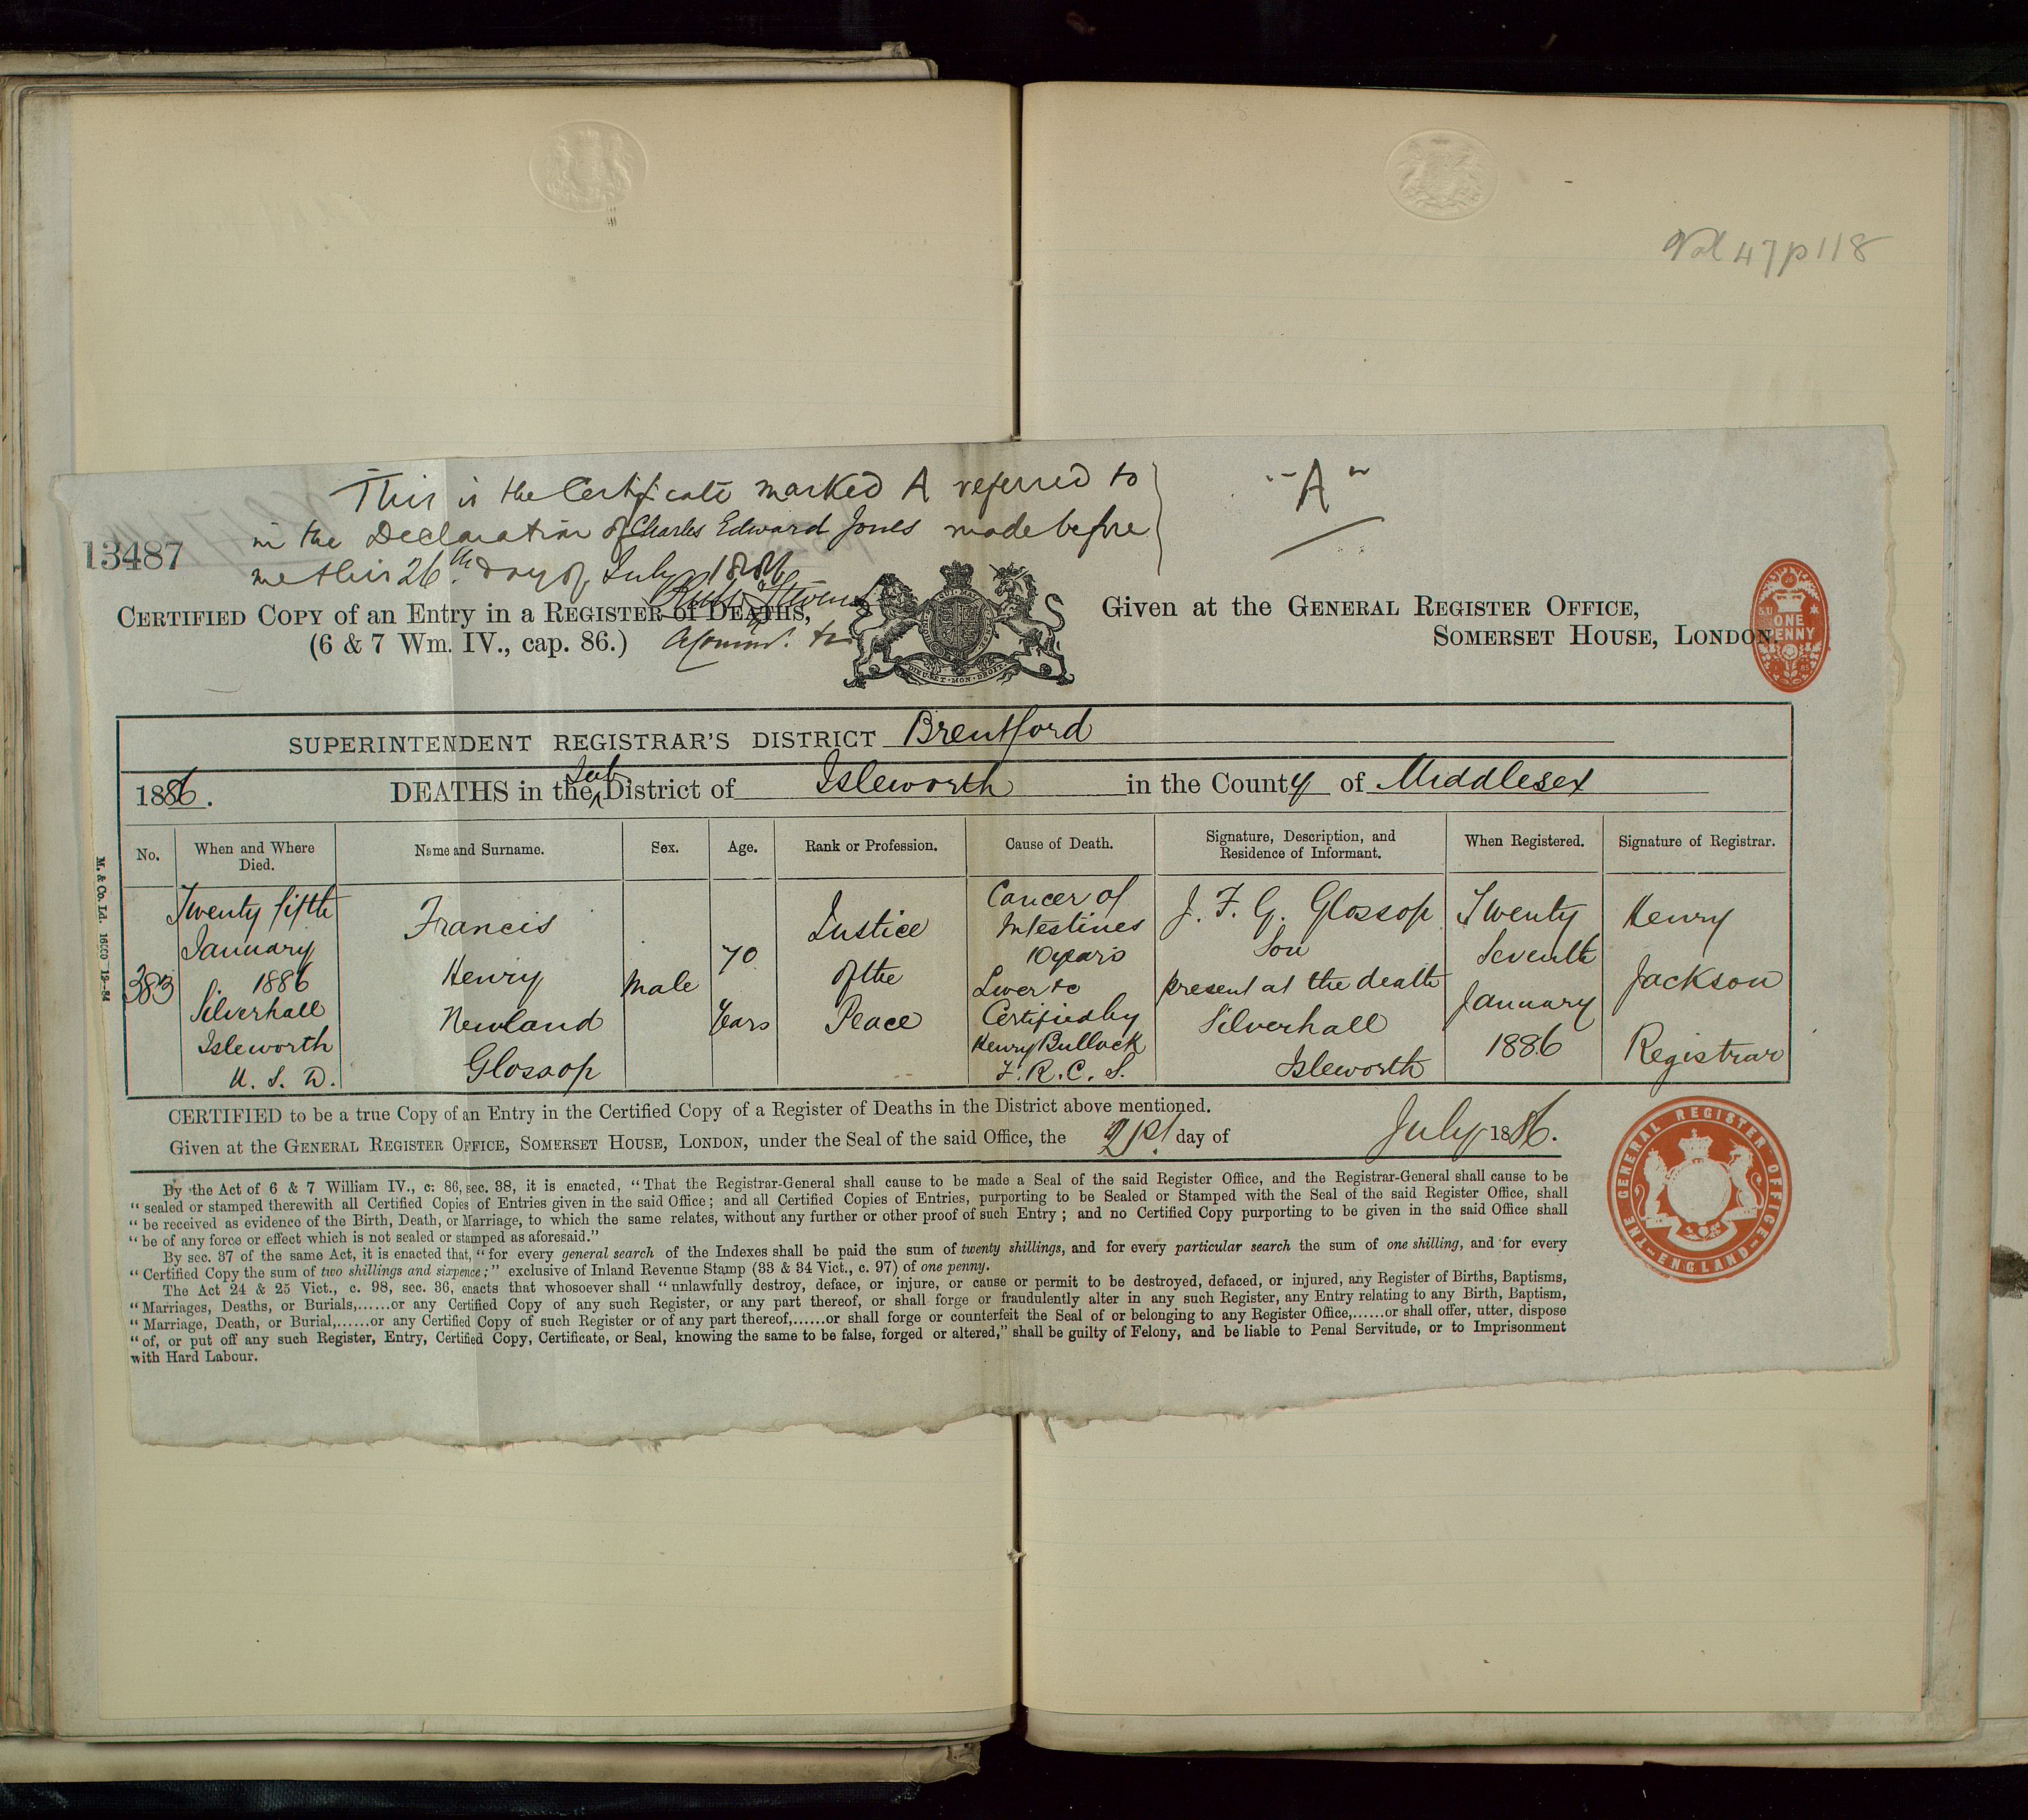 Vol 47 p 118
This is the Certificate marked A referred to
in the Declaration of Charles Edward Jones made before
me this 26th day of July 1886
"A"
13487
CERTIFIED COPY of an Entry in a REGISTER OF DEATHS,
(6 & 7 Wm. IV., cap. 86.)
Given at the GENERAL REGISTER OFFICE,
SOMERSET HOUSE, LONDON.
ONE
PENNY
DIEU ET MON DROIT
SUPERINTENDENT REGISTRAR'S DISTRICT Brentford
1886. DEATHS in the Sub District of Isleworth in the County of Middlesex
No.
When and Where
Died.
Name and Surname.
Sex.
Age.
Rank or Profession.
Cause of Death.
Signature, Description, and
Residence of Informant.
When Registered.
Signature of Registrar.
383
Twenty fifth
January
1886
Silverhall
Isleworth
U. S. D.
Francis
Henry
Newland
Glossop
Male
70
Years
Justice
of the
Peace
Cancer of
Intestines
10 years
Liver &c
Certified by
Henry Bullock
F. R. C. S.
J. F. G. Glossop
Son
present at the death
Silverhall
Isleworth
Twenty
Seventh
January
1886
Henry
Jackson
Registrar
M. & Co. Ld. 16000 12-84
CERTIFIED to be a true Copy of an Entry in the Certified Copy of a Register of Deaths in the District above mentioned.
Given at the GENERAL REGISTER OFFICE, SOMERSET HOUSE, LONDON, under the Seal of the said Office, the 21st day of July 1886.
By the Act of 6 & 7 William IV., c. 86, sec. 38, it is enacted, "That the Registrar-General shall cause to be made a Seal of the said Register Office, and the Registrar-General shall cause to be
"sealed or stamped therewith all Certified Copies of Entries given in the said Office; and all Certified Copies of Entries, purporting to be Sealed or Stamped with the Seal of the said Register Office, shall
"be received as evidence of the Birth, Death, or Marriage, to which the same relates, without any further or other proof of such Entry; and no Certified Copy purporting to be given in the said Office shall
"be of any force or effect which is not sealed or stamped as aforesaid."
By sec. 37 of the same Act, it is enacted that, "for every general search of the Indexes shall be paid the sum of twenty shillings, and for every particular search the sum of one shilling, and for every
"Certified Copy the sum of two shillings and sixpence;" exclusive of Inland Revenue Stamp (33 & 34 Vict., c. 97) of one penny.
The Act 24 & 25 Vict., c. 98, sec. 36, enacts that whosoever shall "unlawfully destroy, deface, or injure, or cause or permit to be destroyed, defaced, or injured, any Register of Births, Baptisms,
"Marriages, Deaths, or Burials,......or any Certified Copy of any such Register, or any part thereof, or shall forge or fraudulently alter in any such Register, any Entry relating to any Birth, Baptism,
"Marriage, Death, or Burial,......or any Certified Copy of such Register or of any part thereof,......or shall forge or counterfeit the Seal of or belonging to any Register Office,......or shall offer, utter, dispose
"of, or put off any such Register, Entry, Certified Copy, Certificate, or Seal, knowing the same to be false, forged or altered," shall be guilty of Felony, and be liable to Penal Servitude, or to Imprisonment
with Hard Labour.
THE GENERAL REGISTER OFFICE
ENGLAND